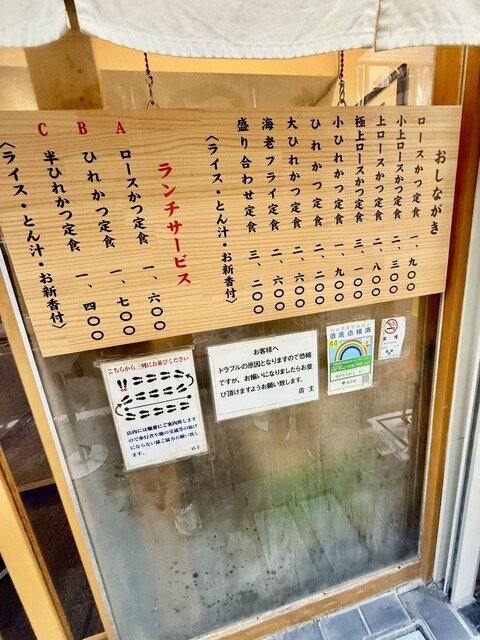 おしながき
ロースかつ定食 一、九〇〇
小上ロースかつ定食 二、三〇〇
上ロースかつ定食 二、八〇〇
極上ロースかつ定食 三、一〇〇
小ひれかつ定食 一、九〇〇
ひれかつ定食 二、二〇〇
大ひれかつ定食 二、六〇〇
海老フライ定食 二、六〇〇
盛り合わせ定食 三、二〇〇
〈ライス・とん汁・お新香付〉
ランチサービス
A ロースかつ定食 一、六〇〇
B ひれかつ定食 一、七〇〇
C 半ひれかつ定食 一、四〇〇
〈ライス・とん汁・お新香付〉
こちらから三列にお並びください
店内には順番にご案内致します
ので歩行者や他の交通等の妨げ
にならない様ご協力お願い致し
ます。 店主
お客様へ
トラブルの原因となりますので恐縮
ですが、お揃いになりましたらお並
び頂けますようお願い致します。
店 主
徹底点検済